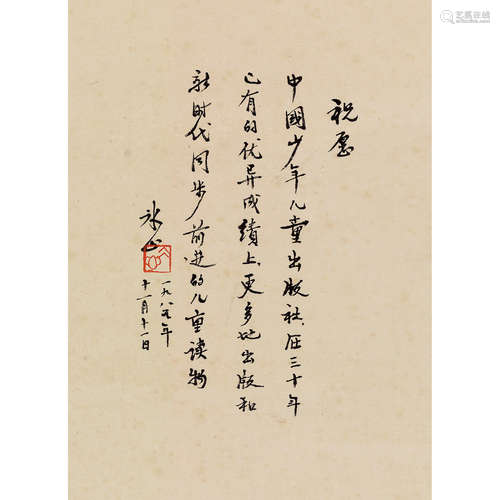 祝愿
中國少年儿童出版社,在三十年
已有的优异成績上,更多地出版和
新时代同步前进的儿童读物
冰心
一九八五年
十一月十一日